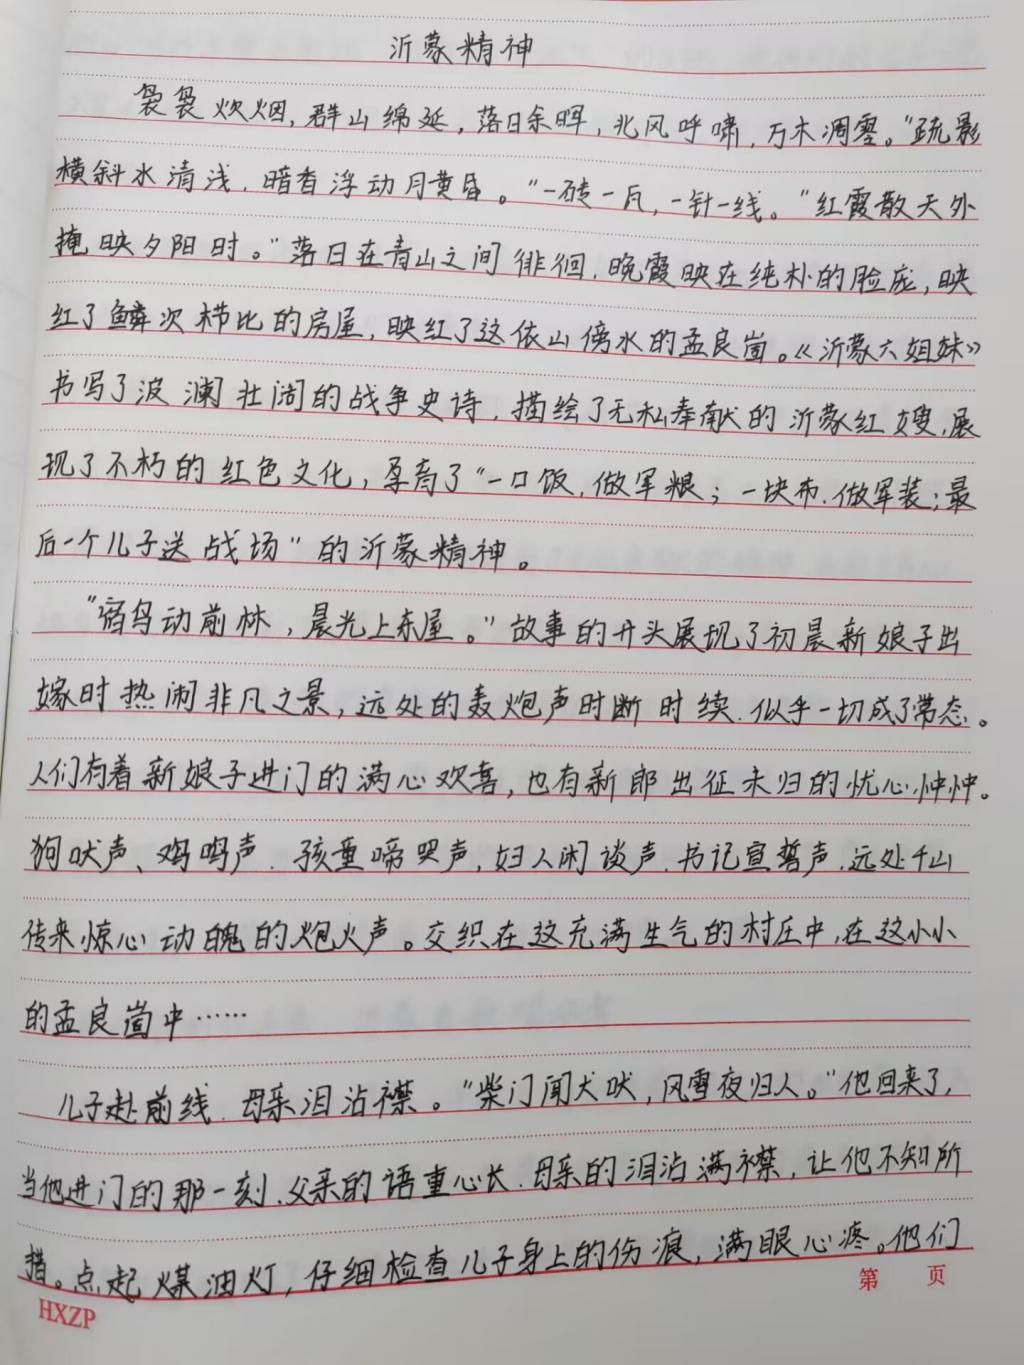 沂蒙精神
袅袅炊烟,群山绵延,落日余晖,北风呼啸,万木凋零。"疏影
横斜水清浅,暗香浮动月黄昏。"一砖一瓦,一针一线。"红霞散天外
掩映夕阳时。"落日在青山之间徘徊,晚霞映在纯朴的脸庞,映
红了鳞次栉比的房屋,映红了这依山傍水的孟良崮。《沂蒙六姐妹》
书写了波澜壮阔的战争史诗,描绘了无私奉献的沂蒙红嫂,展
现了不朽的红色文化,孕育了"一口饭,做军粮;一块布,做军装;最
后一个儿子送战场"的沂蒙精神。
"宿鸟动前林,晨光上东屋。"故事的开头展现了初晨新娘子出
嫁时热闹非凡之景,远处的轰炮声时断时续,似乎一切成了常态。
人们有着新娘子进门的满心欢喜,也有新郎出征未归的忧心忡忡。
狗吠声、鸡鸣声,孩童啼哭声,妇人闲谈声,书记宣誓声,远处千山
传来惊心动魄的炮火声。交织在这充满生气的村庄中,在这小小
的孟良崮中……
儿子赴前线,母亲泪沾襟。"柴门闻犬吠,风雪夜归人。"他回来了,
当他进门的那一刻,父亲的语重心长,母亲的泪沾满襟,让他不知所
措。点起煤油灯,仔细检查儿子身上的伤痕,满眼心疼。他们
第 页
HXZP